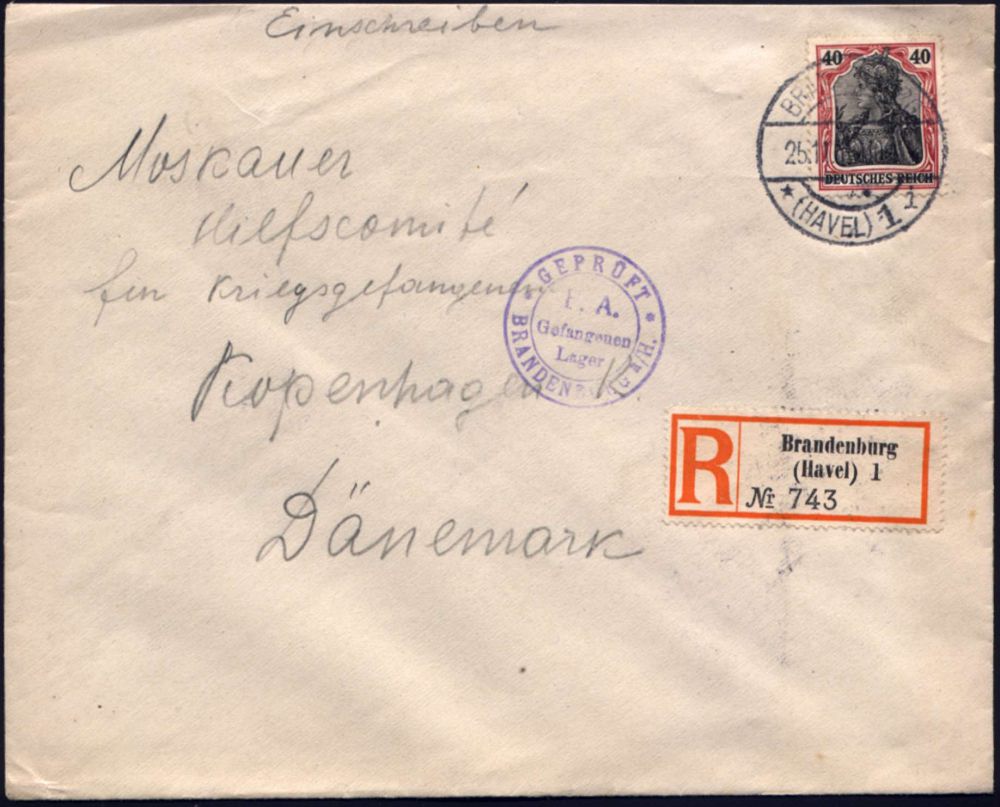 Einschreiben
40 40
DEUTSCHES REICH
25.11
(HAVEL) 1 i
Moskauer
Hilfscomité
für Kriegsgefangenen
Kopenhagen K.
Dänemark
GEPRÜFT
A.
Gefangenen
Lager
BRANDENBURG a/H.
R
Brandenburg
(Havel) 1
№ 743